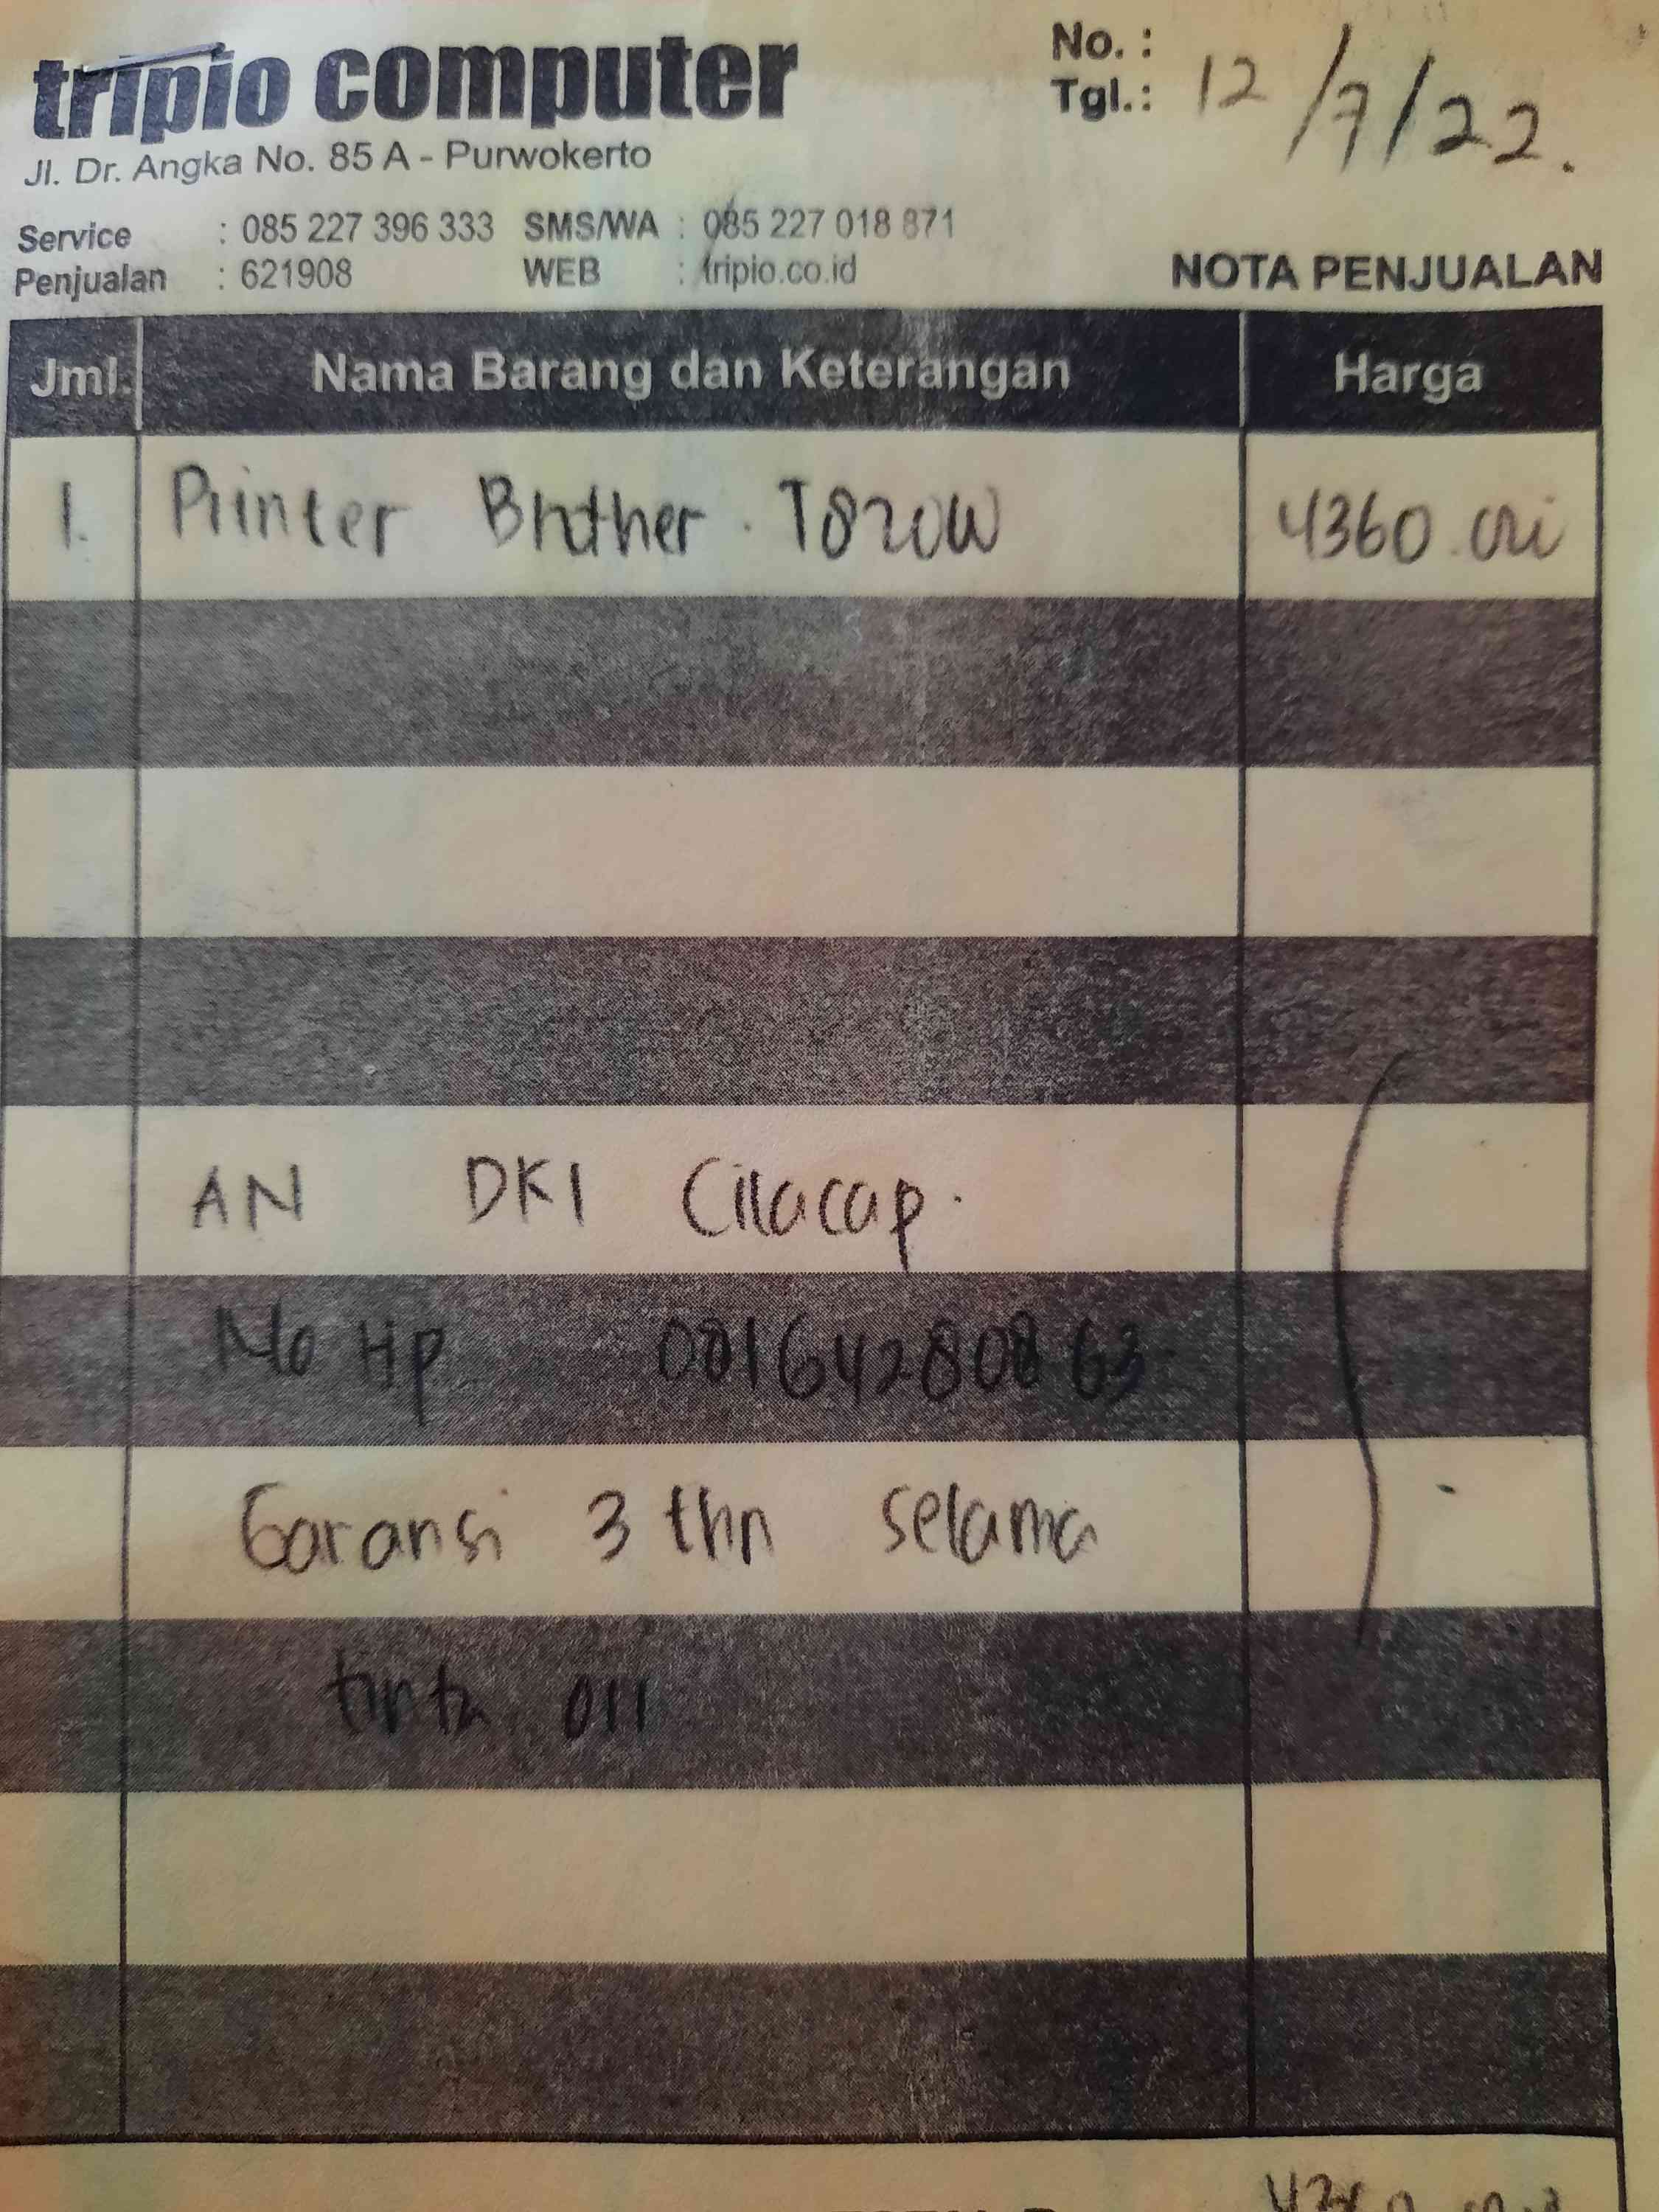 tripio computer
Jl. Dr. Angka No. 85 A - Purwokerto
No. :
Tgl.: 12/7/22.
Service : 085 227 396 333 SMS/WA : 085 227 018 871
Penjualan : 621908 WEB : tripio.co.id
NOTA PENJUALAN
Jml. Nama Barang dan Keterangan Harga
1. Printer Brother . T820W 4360.
AN DKI Cilacap.
No Hp 08164280863
Garansi 3 thn selama
tinta ori